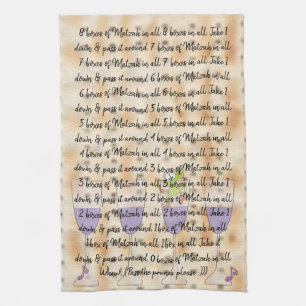 8 boxes of Matzah in all 8 boxes of Matzah in all. Take 1
down & pass it around 7 boxes of Matzah in all.
7 boxes of Matzah in all 7 boxes of Matzah in all. Take 1
down & pass it around 6 boxes of Matzah in all.
6 boxes of Matzah in all 6 boxes of Matzah in all. Take 1
down & pass it around 5 boxes of Matzah in all.
5 boxes of Matzah in all 5 boxes of Matzah in all. Take 1
down & pass it around 4 boxes of Matzah in all.
4 boxes of Matzah in all 4 boxes of Matzah in all. Take 1
down & pass it around 3 boxes of Matzah in all.
3 boxes of Matzah in all 3 boxes of Matzah in all. Take 1
down & pass it around 2 boxes of Matzah in all.
2 boxes of Matzah in all 2 boxes of Matzah in all. Take 1
down & pass it around 1 box of Matzah in all.
1 box of Matzah in all 1 box of Matzah in all Take it
down & pass it around 0 boxes of Matzah in all.
Whew! (Pass the prunes please :))